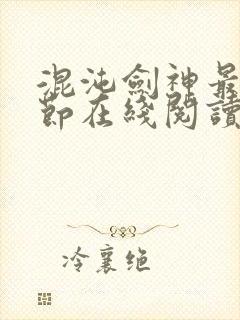 混沌劍神最
節在綫閱讀
冷襄绝